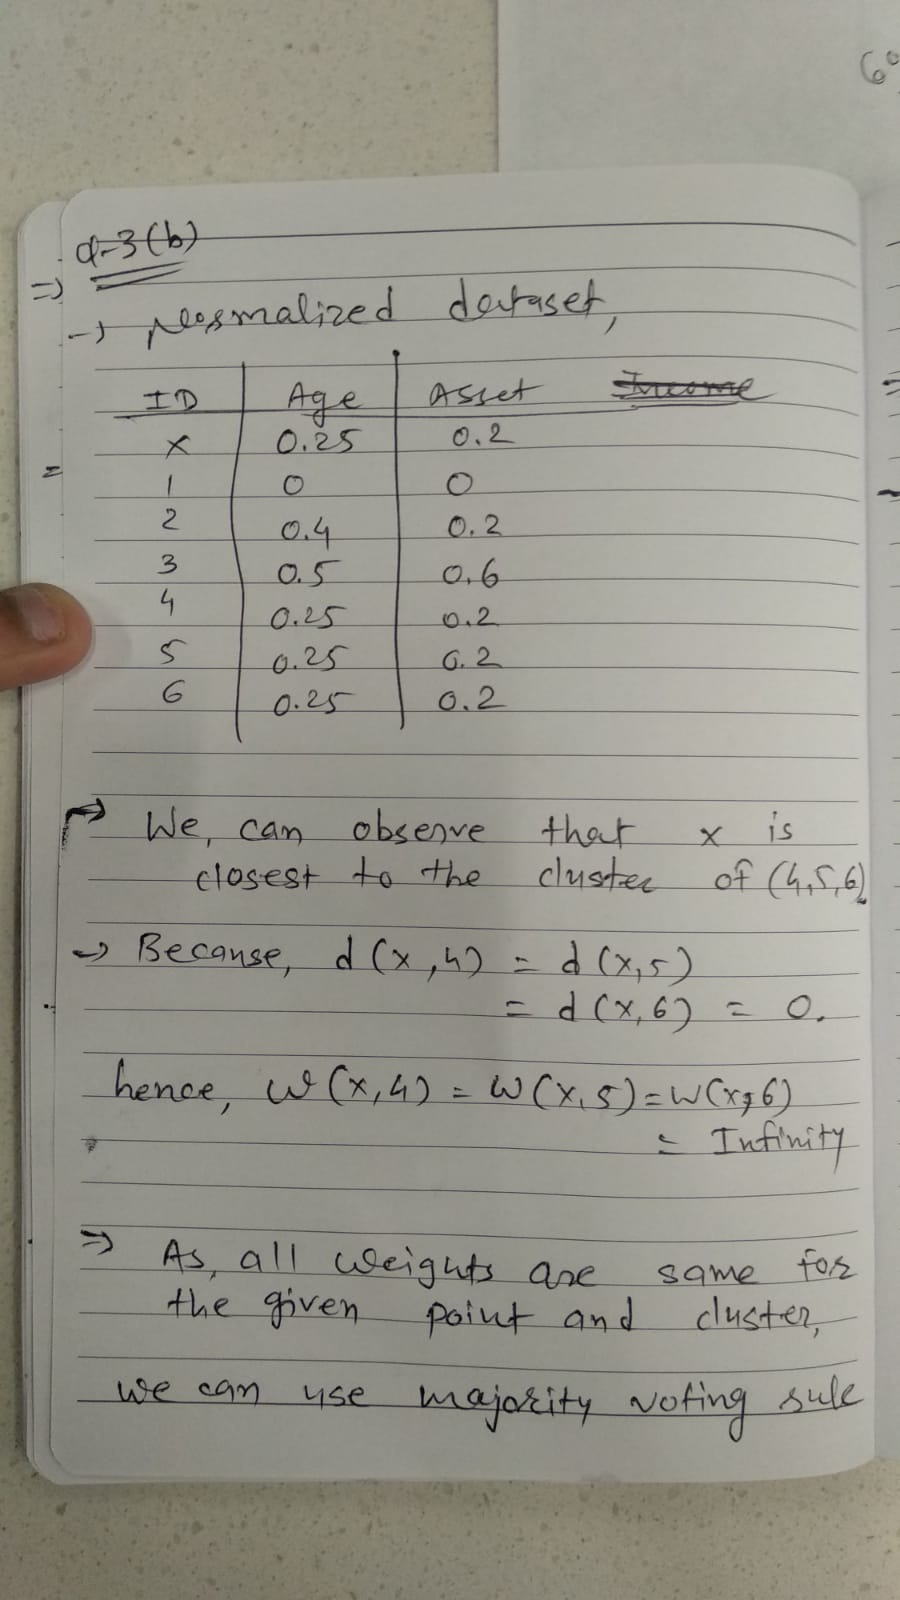 60
Q-3(b)
=> 
-> Normalized dataset,
ID Age Asset Income
x 0.25 0.2
1 0 0
2 0.4 0.2
3 0.5 0.6
4 0.25 0.2
5 0.25 0.2
6 0.25 0.2
-> We, can observe that x is
closest to the cluster of (4,5,6)
-> Because, d(x,4) = d(x,5)
= d(x,6) = 0.
hence, W(x,4) = W(x,5) = W(x,6)
= Infinity
=> As, all weights are same for
the given point and cluster,
we can use majority voting rule